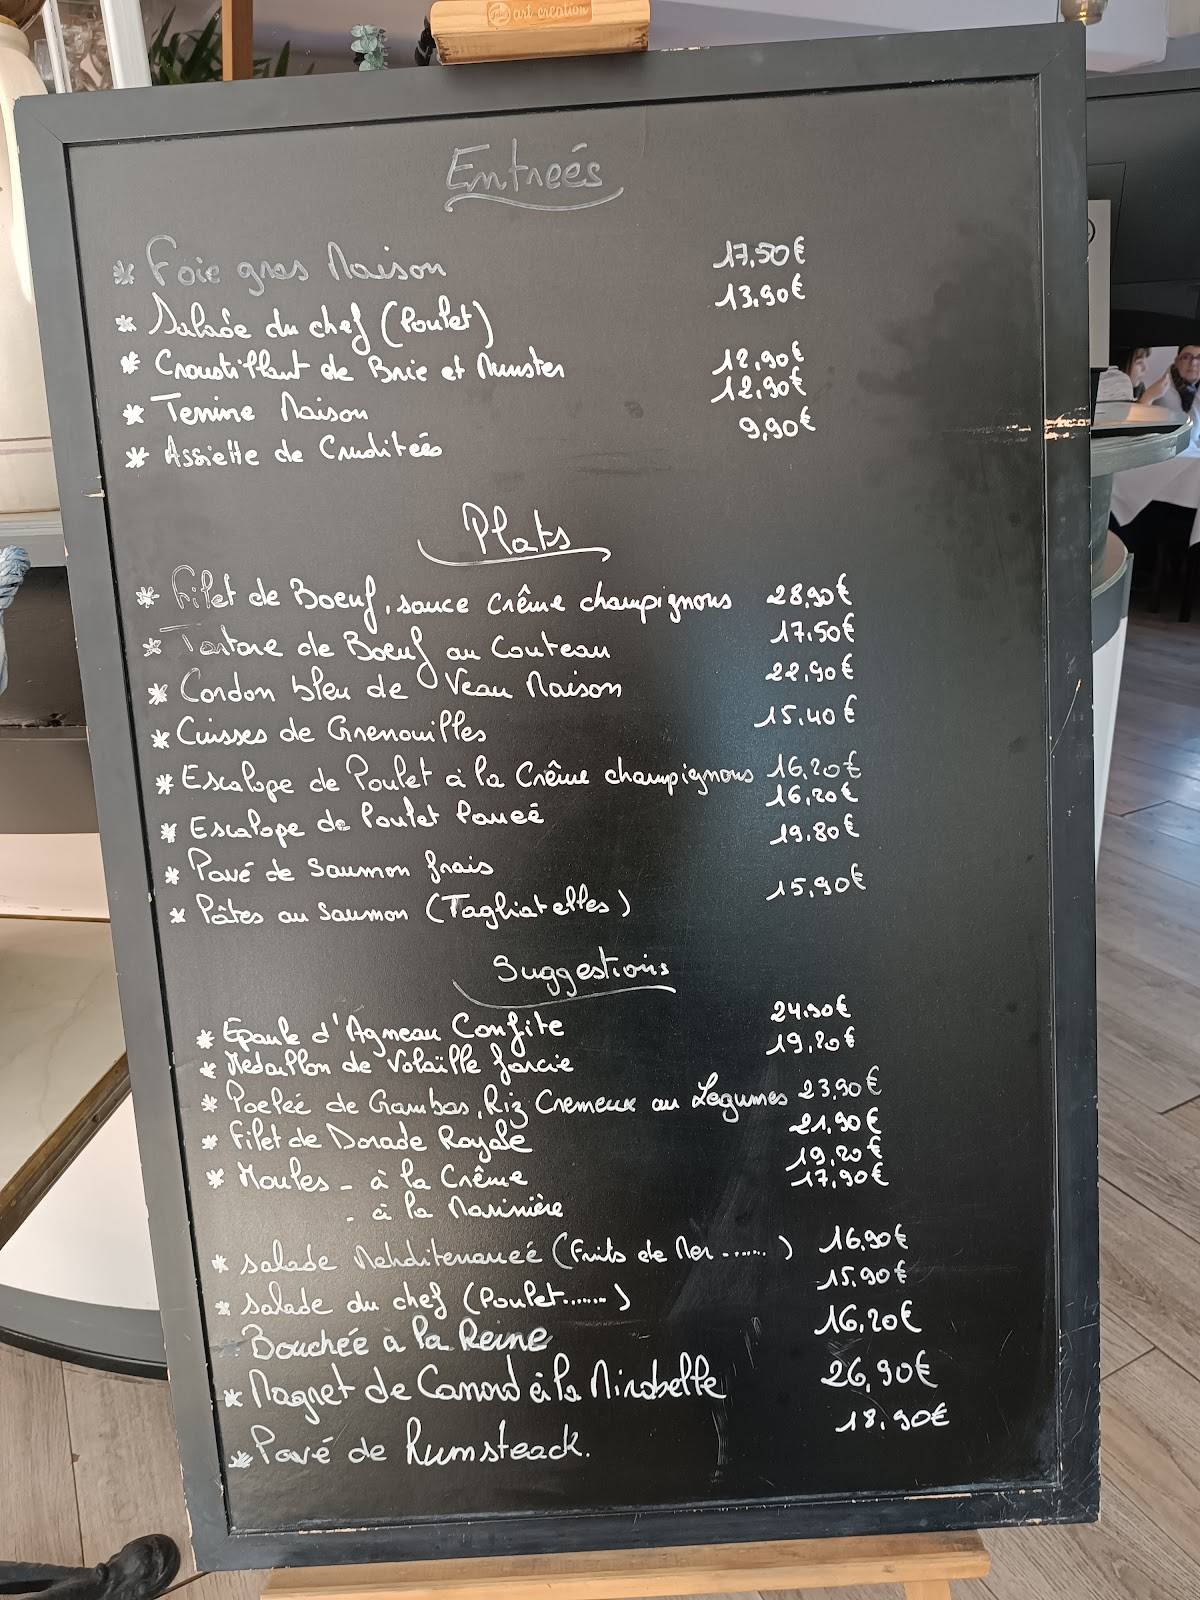 art création
Entreés
* Foie gras Maison 17,50€
* Salade du chef (Poulet) 13,90€
* Croustillant de Brie et Munster 12,90€
* Terrine Maison 12,90€
* Assiette de Cruditeés 9,90€
Plats
* Filet de Boeuf, sauce Crême champignons 28,90€
* Tartare de Boeuf au Couteau 17,50€
* Cordon bleu de Veau Maison 22,90€
* Cuisses de Grenouilles 15,40€
* Escalope de Poulet à la Crême champignons 16,20€
* Escalope de Poulet Paneé 16,20€
* Pavé de Saumon frais 19,80€
* Pâtes au Saumon (Tagliatelles) 15,90€
Suggestions
* Épaule d'Agneau Confite 24,90€
* Médaillon de Volaille farcie 19,20€
* Poeleé de Gambas, Riz Cremeux au Legumes 23,90€
* Filet de Dorade Royale 21,90€
* Moules - à la Crême 19,20€
- à la Marinière 17,90€
* Salade (Fruits de Mer.......) 16,90€
* Salade du chef (Poulet.......) 15,90€
* Bouchée à la Reine 16,20€
* Magret de Canard à la Mirabelle 26,90€
* Pavé de Rumsteack. 18,90€